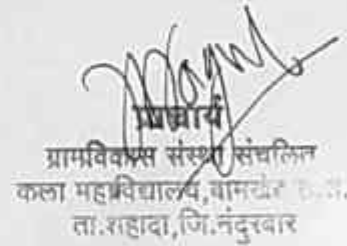 प्राचार्य
ग्रामविकास संस्था संचलित
कला महाविद्यालय, बामखेडा
ता.शहादा,जि.नंदुरबार